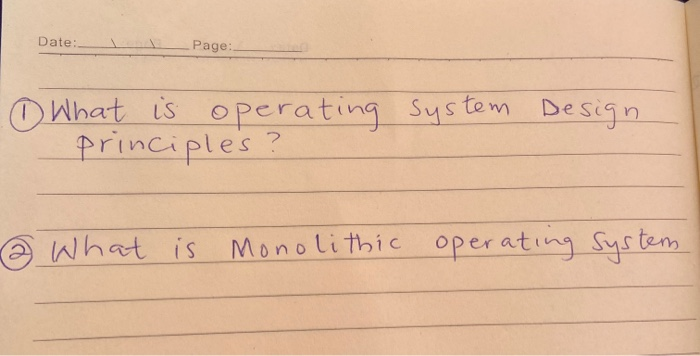 Date: Page:
① What is operating System Design
principles?
② What is Monolithic operating System